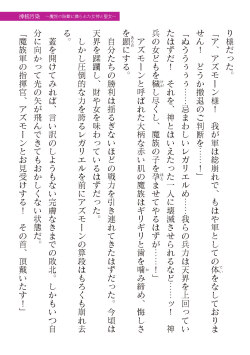 神核汚染 ～魔族の肉欲に嬲られた女神と聖女～
り様だった。
「ア、アズモーン様！　我が軍は総崩れで、もはや軍としての体をなしておりま
せん！　どうか撤退のご判断を……！」
「ぬううぅうっ……忌まわしいレガリエルめ！　我らの兵力は天界を上回ってい
たはずだ！　それを、神とはいえたった一人に壊滅させられるなど……ッ！　神
兵の女どもを穢し尽くし、魔族の子を孕ませてやるはずが……！」
　アズモーンと呼ばれた大柄な赤い肌の魔族はギリギリと歯を噛み締め、悔しさ
を顔にする。
　自分たちの勝利は揺るぎないほどの戦力を引き連れてきたはずだった。今頃は
天界を蹂躙し、財や女を味わっているはずだった。
　しかし、圧倒的な力を誇るレガリエルを前にアズモーンの算段はもろくも崩れ
去った。
　蓋を開けてみれば、言い訳のしようもない完膚なきまでの敗北。しかもいつ自
分に向かって光の矢が飛んできてもおかしくない状態だ。
「魔族軍の指揮官、アズモーンとお見受けする！　その首、頂戴いたす！」